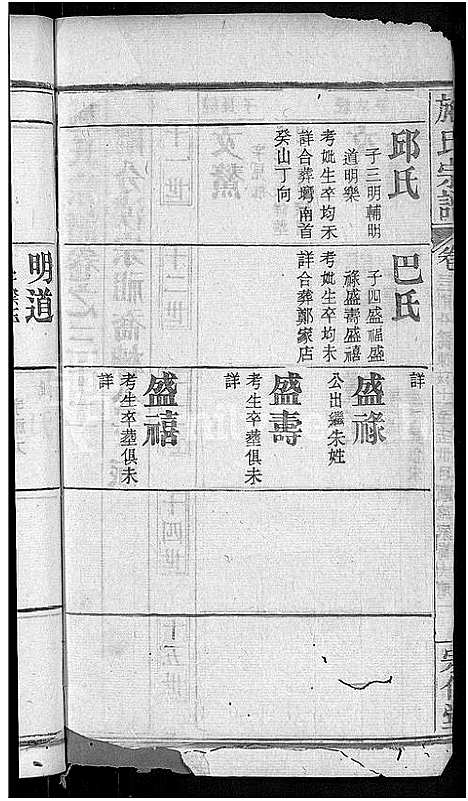 施氏宗譜
卷三
邱氏
子三明輔明
道明樂
考妣生卒均未
詳合葬塆南首
癸山丁向
巴氏
子四盛福盛
祿盛壽盛禧
考妣生卒均未
詳合葬鄭家店
詳
盛祿
公出繼朱姓
盛壽
考生卒塟俱未
詳
盛禧
考生卒塟俱未
詳
明道